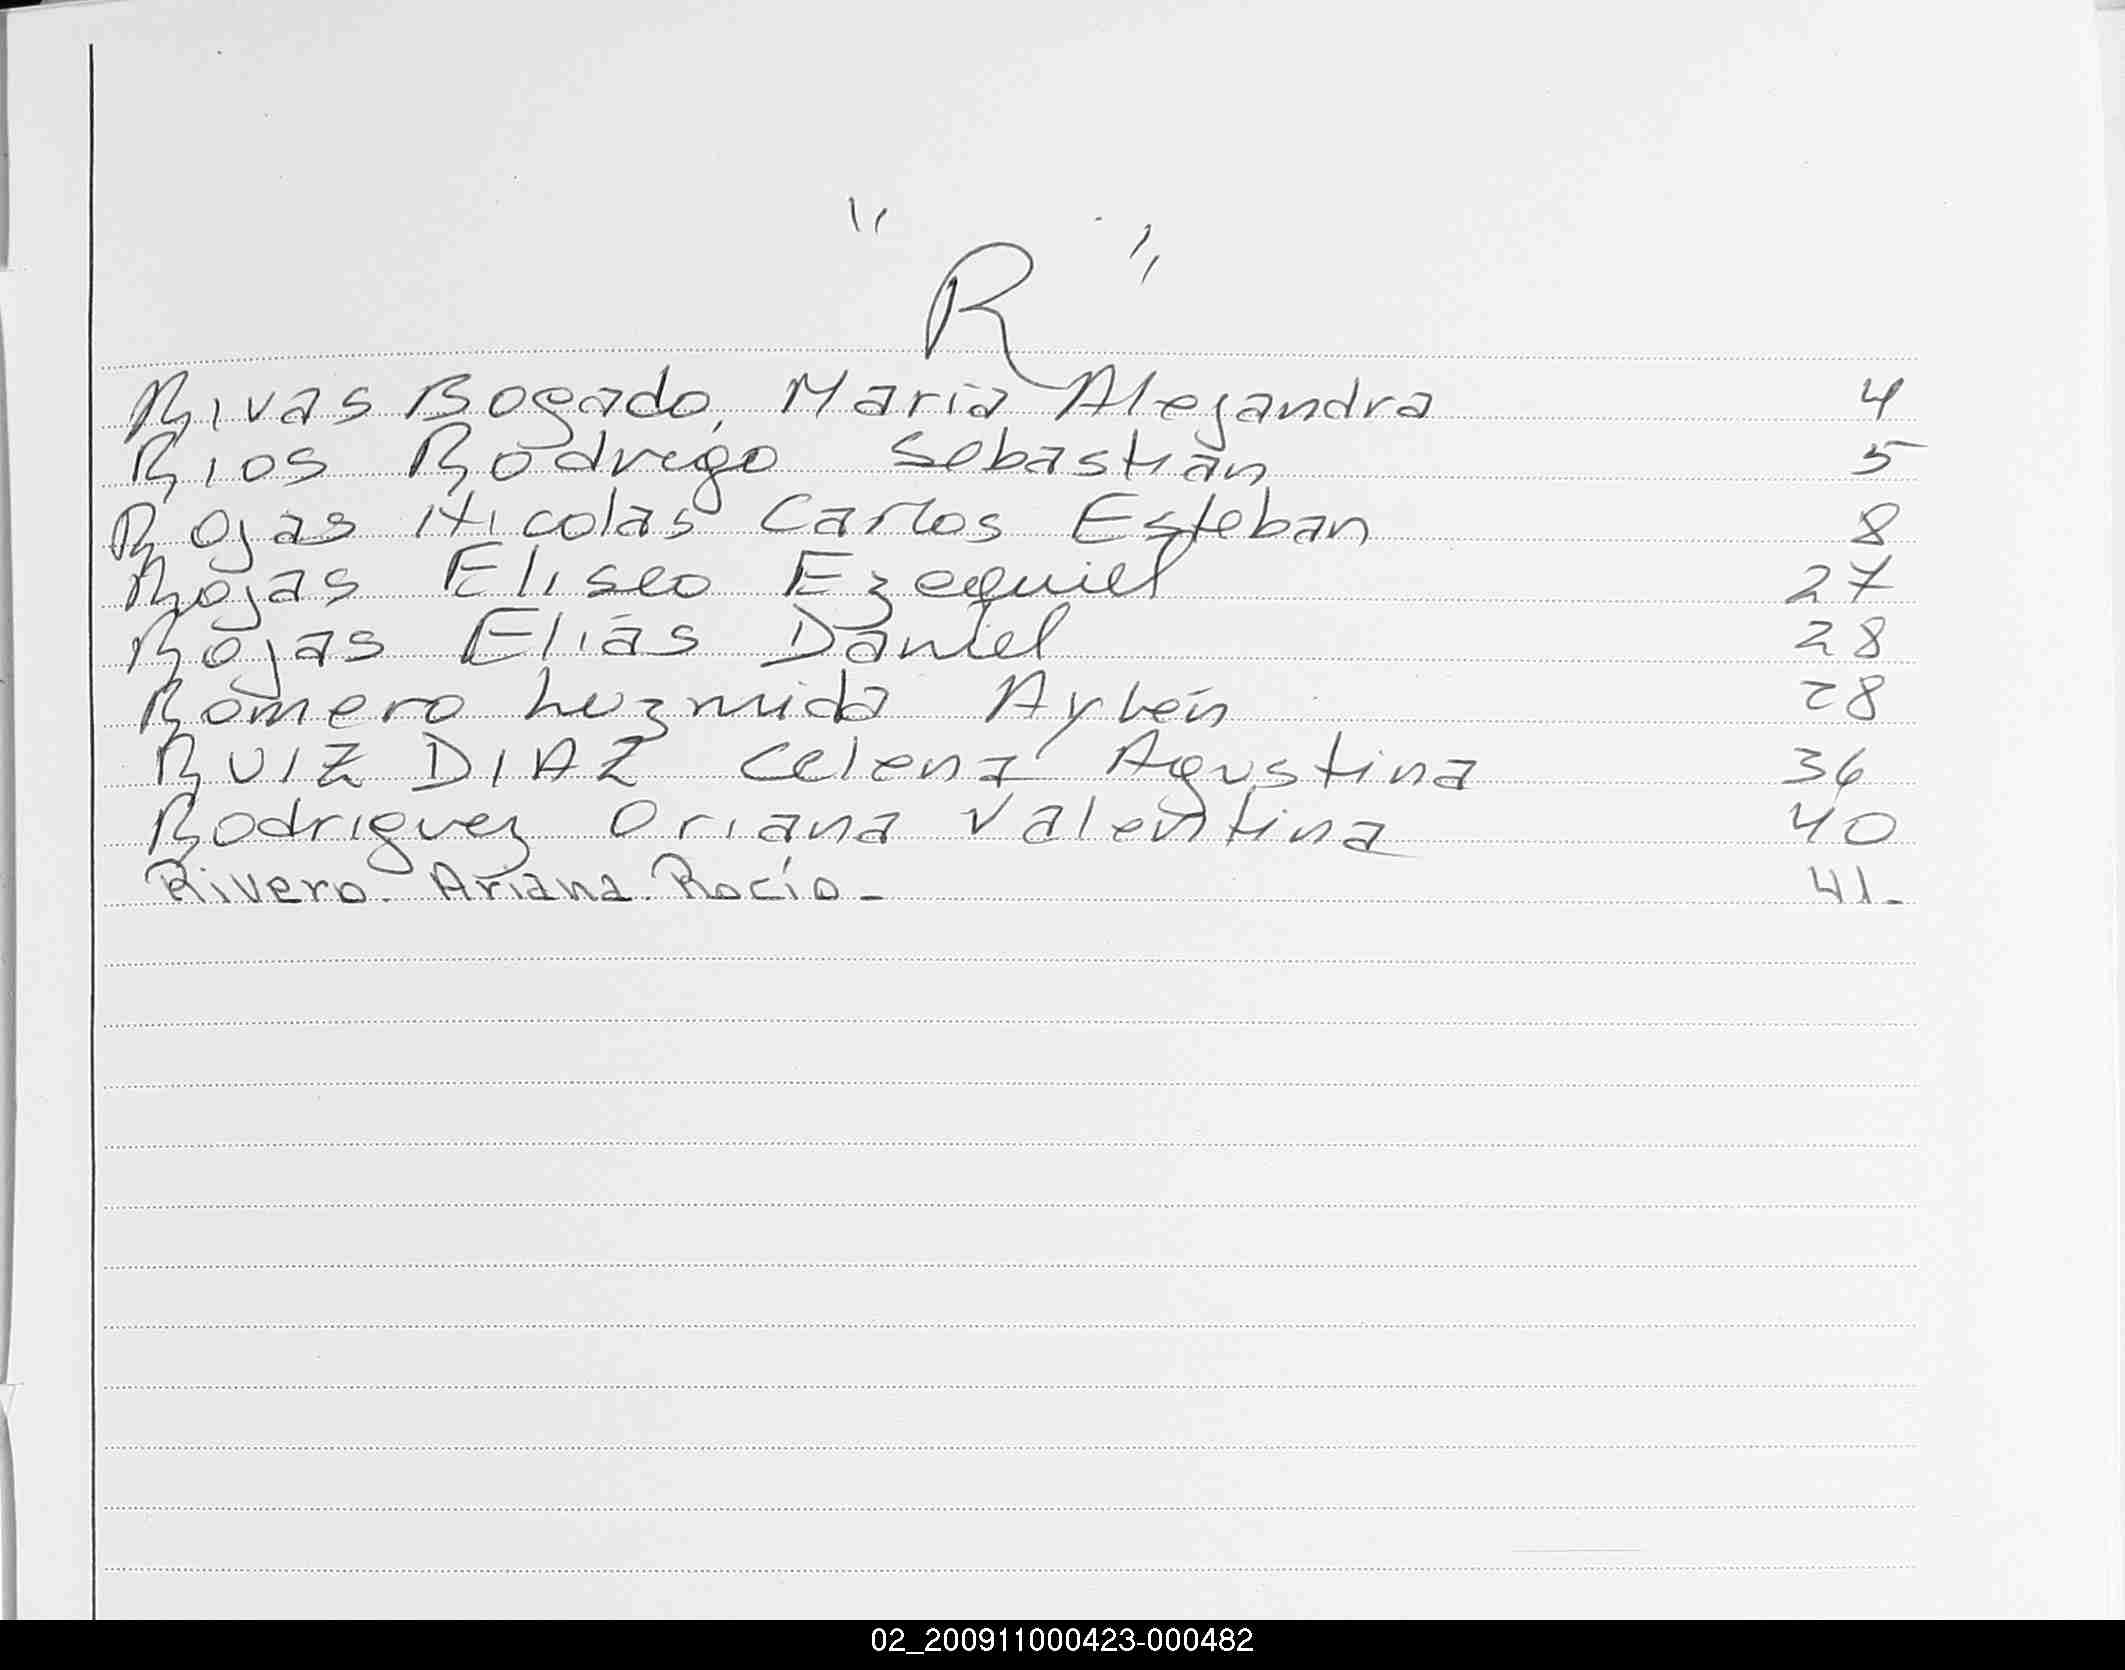 "R"
Rivas Bogado, Maria Alejandra 4
Rios Rodrigo Sebastián 5
Rojas Nicolas Carlos Esteban 8
Rojas Eliseo Ezequiel 27
Rojas Elias Daniel 28
Romero Luzmida Aylén 28
RUIZ DIAZ Celena Agustina 36
Rodriguez Oriana Valentina 40
Rivero. Ariana. Rocío - 41.-
02_200911000423-000482